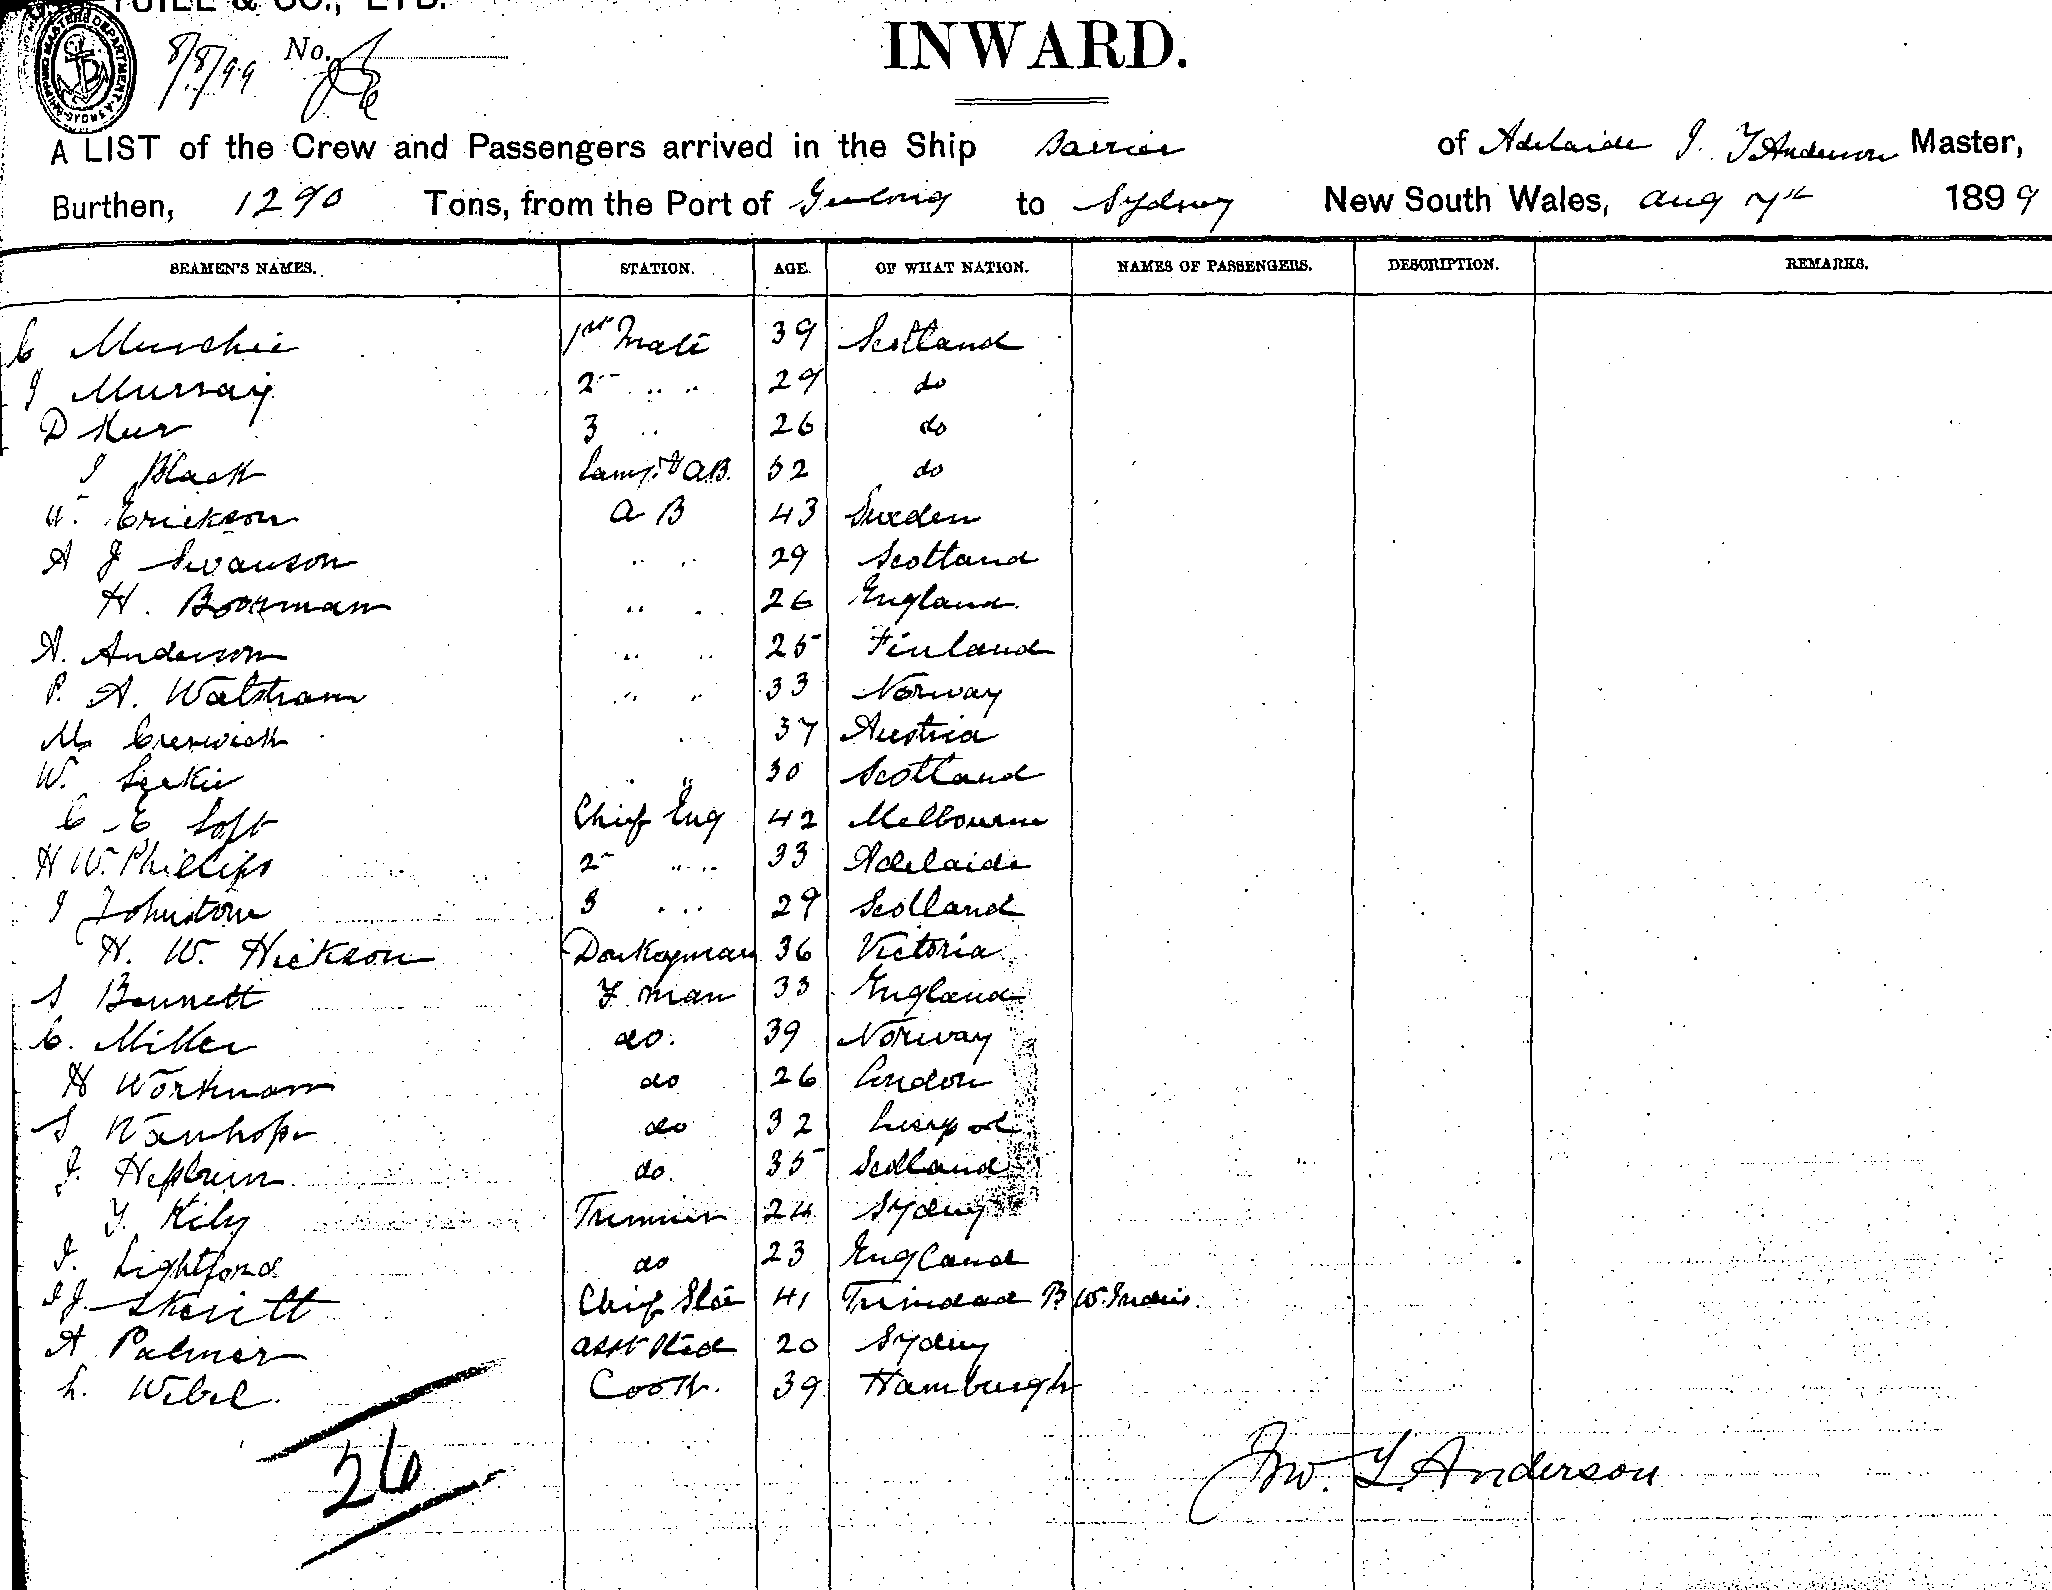 & CO., LTD.
8/8/99 No.
INWARD.
A LIST of the Crew and Passengers arrived in the Ship Barrier of Adelaide J. Y Anderson Master,
Burthen, 1290 Tons, from the Port of Geelong to Sydney New South Wales, Aug 7th 1899
SEAMEN'S NAMES. STATION. AGE. OF WHAT NATION. NAMES OF PASSENGERS. DESCRIPTION. REMARKS.
C Murchie 1st Mate 39 Scotland
J Murray 2 " " 29 do
D Kerr 3 " 26 do
J Black Lamps & AB. 52 do
Erickson A B 43 Sweden
A J Swanson " " 29 Scotland
H. Boorman " " 26 England
A. Anderson " " 25 Finland
P. A. Walstram " " 33 Norway
M. Creswick " 37 Austria
W. " " 30 Scotland
C E Loft Chief Eng 42 Melbourne
H W. Phillips 2 " " 33 Adelaide
J Johnstone 3 " " 29 Scotland
H. W. Hickson Donkeyman 36 Victoria
S Bennett F. man 33 England
C. Miller do. 39 Norway
H Workman do 26 London
S Wanhope do 32 Liverpool
J. Hepburn do. 35 Scotland
Kily Trimmer 24 Sydney
J. Lightford do 23 England
J J. Skeritt Chief Std 41 Trinidad B W. Indies.
A Palmer Asst Sted 20 Sydney
L. Webel. Cook. 39 Hamburgh
26
Jno. Y. Anderson